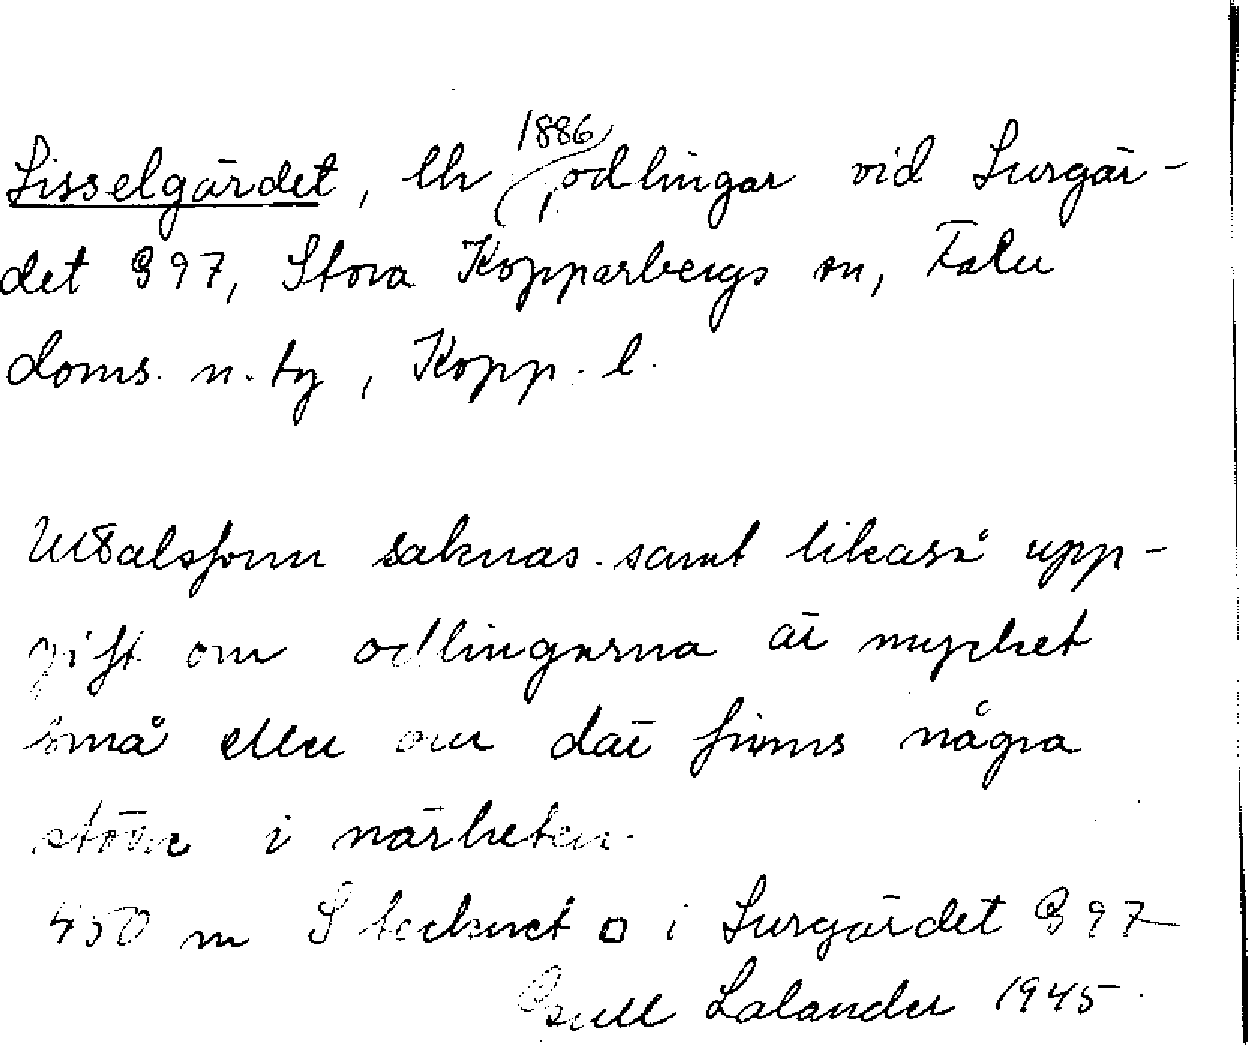 1886
Lisselgärdet, lh odlingar vid Lurgär-
det 897, Stora Kopparbergs sn, Falu
doms. n. tg, Kopp. l.
Uttalsform saknas samt likaså upp-
gift om odlingarna är mycket
små eller om där finns några
större i närheten.
450 m S tecknet □ i Lurgärdet 897
Gull Lalander 1945.